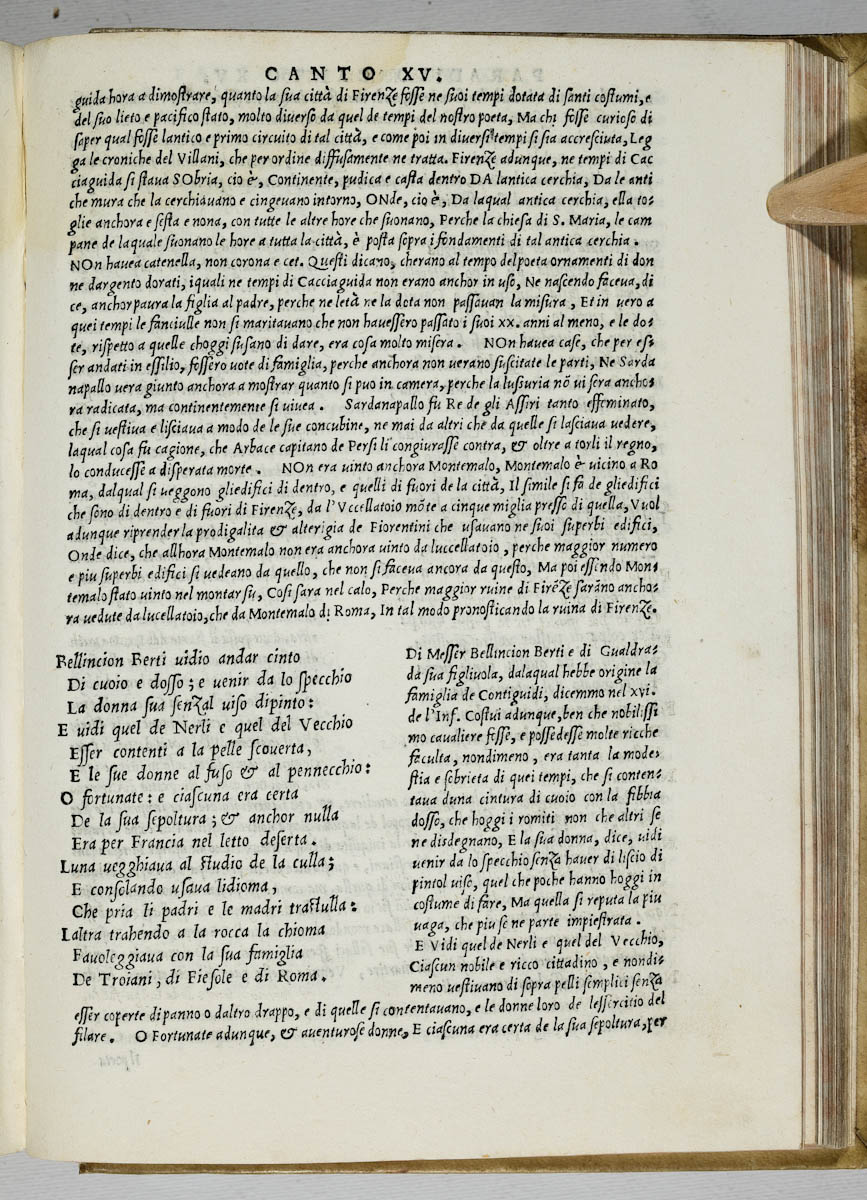 CANTO XV.
guida hora a dimostrare, quanto la sua città di Firenze fosse ne suoi tempi dotata di santi costumi, e
del suo lieto e pacifico stato, molto diverso da quel de tempi del nostro poeta, Ma chi fosse curioso di
saper qual fosse lantico e primo circuito di tal città, e come poi in diversi tempi si sia accresciuta, Leg
ga le croniche del Villani, che per ordine diffusamente ne tratta. Firenze adunque, ne tempi di Cac
ciaguida si stava SObria, cio è, Continente, pudica e casta dentro DA lantica cerchia, Da le anti
che mura che la cerchiavano e cingevano intorno, ONde, cio è, Da laqual antica cerchia, ella to-
glie anchora e sesta e nona, con tutte le altre hore che suonano, Perche la chiesa di S. Maria, le cam
pane de laquale suonano le hore a tutta la città, è posta sopra i fondamenti di tal antica cerchia.
NOn havea catenella, non corona e cet. Questi dicano, cherano al tempo del poeta ornamenti di don
ne dargento dorati, iquali ne tempi di Cacciaguida non erano anchor in uso, Ne nascendo faceva, di
ce, anchor paura la figlia al padre, perche ne letà ne la dota non passavan la misura, Et in vero a
quei tempi le fanciulle non si maritavano che non havessero passato i suoi xx. anni al meno, e le do-
te, rispetto a quelle choggi susano di dare, era cosa molto misera. NOn havea case, che per es-
ser andati in essilio, fossero uote di famiglia, perche anchora non uerano suscitate le parti, Ne Sarda
napallo uera giunto anchora a mostrar quanto si puo in camera, perche la lussuria nõ ui sera ancho-
ra radicata, ma continentemente si uivea. Sardanapallo fu Re de gli Assiri tanto effeminato,
che si uestiva e lisciava a modo de le sue concubine, ne mai da altri che da quelle si lasciava uedere,
laqual cosa fu cagione, che Arbace capitano de Persi li congiurasse contra, & oltre a torli il regno,
lo conducesse a disperata morte. NOn era uinto anchora Montemalo, Montemalo è uicino a Ro
ma, dalqual si ueggono gliedifici di dentro, e quelli di fuori de la città, Il simile si fa de gliedifici
che sono di dentro e di fuori di Firenze, da l'Vccellatoio mõte a cinque miglia presso di quella, Vuol
adunque riprender la prodigalita & alterigia de Fiorentini che usavano ne suoi superbi edifici,
Onde dice, che allhora Montemalo non era anchora uinto da luccellatoio, perche maggior numero
e piu superbi edifici si uedeano da quello, che non si faceua ancora da questo, Ma poi essendo Mon-
temalo stato uinto nel montar su, Cosi sara nel calo, Perche maggior ruine di Firẽze sarãno ancho-
ra uedute da lucellatoio, che da Montemalo di Roma, In tal modo pronosticando la ruina di Firenze.
Bellincion Berti uidio andar cinto
Di cuoio e dosso; e uenir da lo specchio
La donna sua senzal uiso dipinto:
E uidi quel de Nerli e quel del Vecchio
Esser contenti a la pelle scouerta,
E le sue donne al fuso & al pennecchio:
O fortunate: e ciascuna era certa
De la sua sepoltura; & anchor nulla
Era per Francia nel letto deserta.
Luna uegghiava al studio de la culla;
E consolando usava lidioma,
Che pria li padri e le madri trastulla:
Laltra trahendo a la rocca la chioma
Favoleggiava con la sua famiglia
De Troiani, di Fiesole e di Roma.
Di Messer Bellincion Berti e di Gualdra-
da sua figliuola, dalaqual hebbe origine la
famiglia de Contiguidi, dicemmo nel xvi.
de l'Inf. Costui adunque, ben che nobilissi
mo cavaliere fosse, e possedesse molte ricche
faculta, nondimeno, era tanta la mode-
stia e sobrieta di quei tempi, che si conten-
tava duna cintura di cuoio con la fibbia
dosso, che hoggi i romiti non che altri se
ne disdegnano, E la sua donna, dice, uidi
uenir da lo specchio senza haver di liscio di
pintol uiso, quel che poche hanno hoggi in
costume di fare, Ma quella si reputa la piu
uaga, che piu se ne parte impiestrata.
E Vidi quel de Nerli e quel del Vecchio,
Ciascun nobile e ricco cittadino, e nondi-
meno uestivano di sopra pelli semplici senza
esser coperte di panno o daltro drappo, e di quelle si contentavano, e le donne loro de lessercitio del
filare. O Fortunate adunque, & aventurose donne, E ciascuna era certa de la sua sepoltura, per